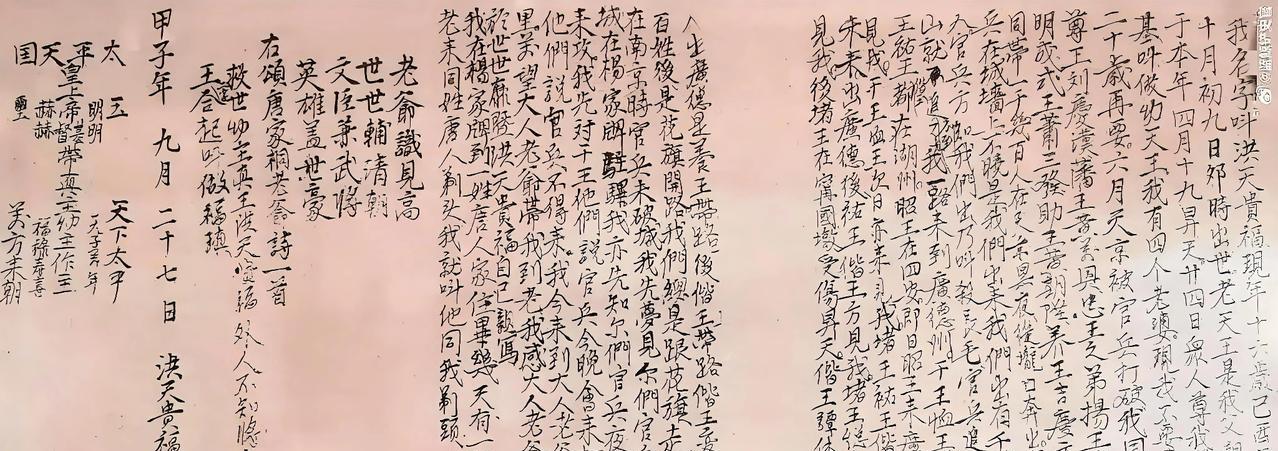 我名字叫洪天貴福現年十六歲己酉
十月初九日卯時出世老天王是我父親
于本年四月十九昇天廿四日眾人尊我
基叫做幼天王我有四个老婆現我不
二十歲再娶六月天京被官兵打破我同
尊王刘慶漢藩王黃萬興忠王之弟揚王
明成式王蕭三發助王黃期陞养王吉慶元
同帶一千幾百人在
兵在城墻上不曉是我們出來我們出有千
入官兵方知我們出乃叫殺長毛官兵追
山就追到我一路來到廣德州于王恤王
王祐王都在湖州昭王在四安即日昭王來廣
見我于王恤王次日亦來見我堵王祐王偕
朱來出廣德後祐王偕王方見我堵王總
見我後堵王在寗國墩受傷昇天偕王譚体
人出廣德是養王帶路後偕王帶路偕王
百姓後是花旗開路我們總是跟花旗走
在南京時官兵未破城我先夢見尔們官兵
城在楊家牌駐驛我亦先知尔們官兵夜
來攻我先对干王他們說官兵今晚會來
他們說官兵不得來我今來到大人老爺
里萬望大人老爺帶我到老我感大人老爺
於世世靡暨洪天貴福自己親寫
我在楊家牌到一姓唐人家住畢幾天有一
老来同姓唐人剃头我就叫他同我剃頭
老爺識見高
世世輔清朝
文臣兼武將
英雄盖世豪
右頌唐家桐老爺詩一首
救世幼主真王洪天貴福外人不知將
王合起叫做福瑱
甲子年 九月 二十七日 洪天貴福
太 玉 天下太平
平
天 皇上帝基督帶真主幼主作主
囯 璽
明明
赫赫
福祿壽喜
萬方來朝